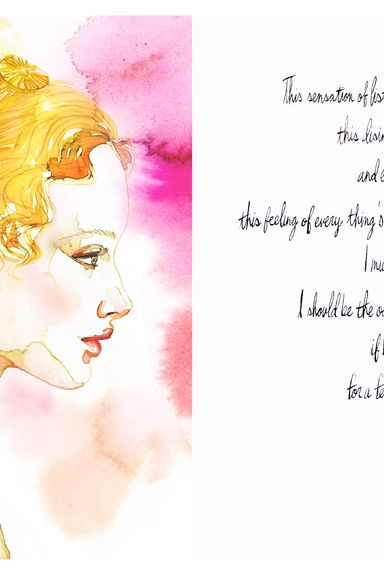 This sensation of list
this livin
and e
this feeling of every thing's
I mu
I should be the o
if
for a fe